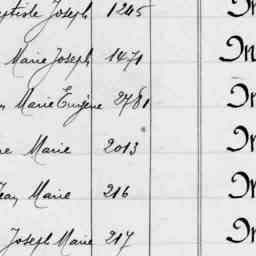 Joseph 1245 In
Marie Joseph 1471 In
Marie Eugène 2781 In
Marie 2013 In
Jean Marie 216 In
Joseph Marie 217 In